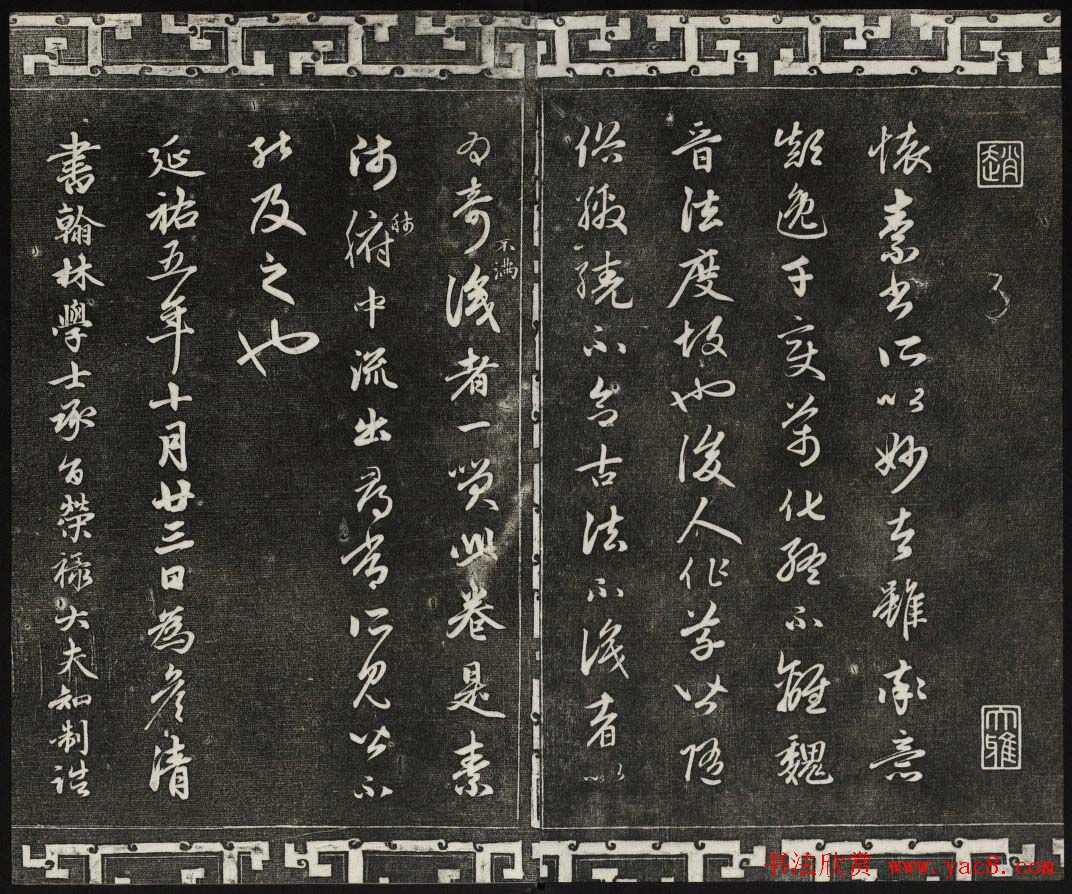 趙
大雅
懷素書所以妙者雖率意
顛逸千變萬化終不離魏
晉法度故也後人作草皆隨
俗繳繞不合古法不識者以
為奇不滿識者一笑此卷是素
師肺腑中流出尋常所見皆不
能及之也
延祐五年十月廿三日為彥清
書翰林學士承旨榮祿大夫知制誥
书法欣赏 www.yac8.com